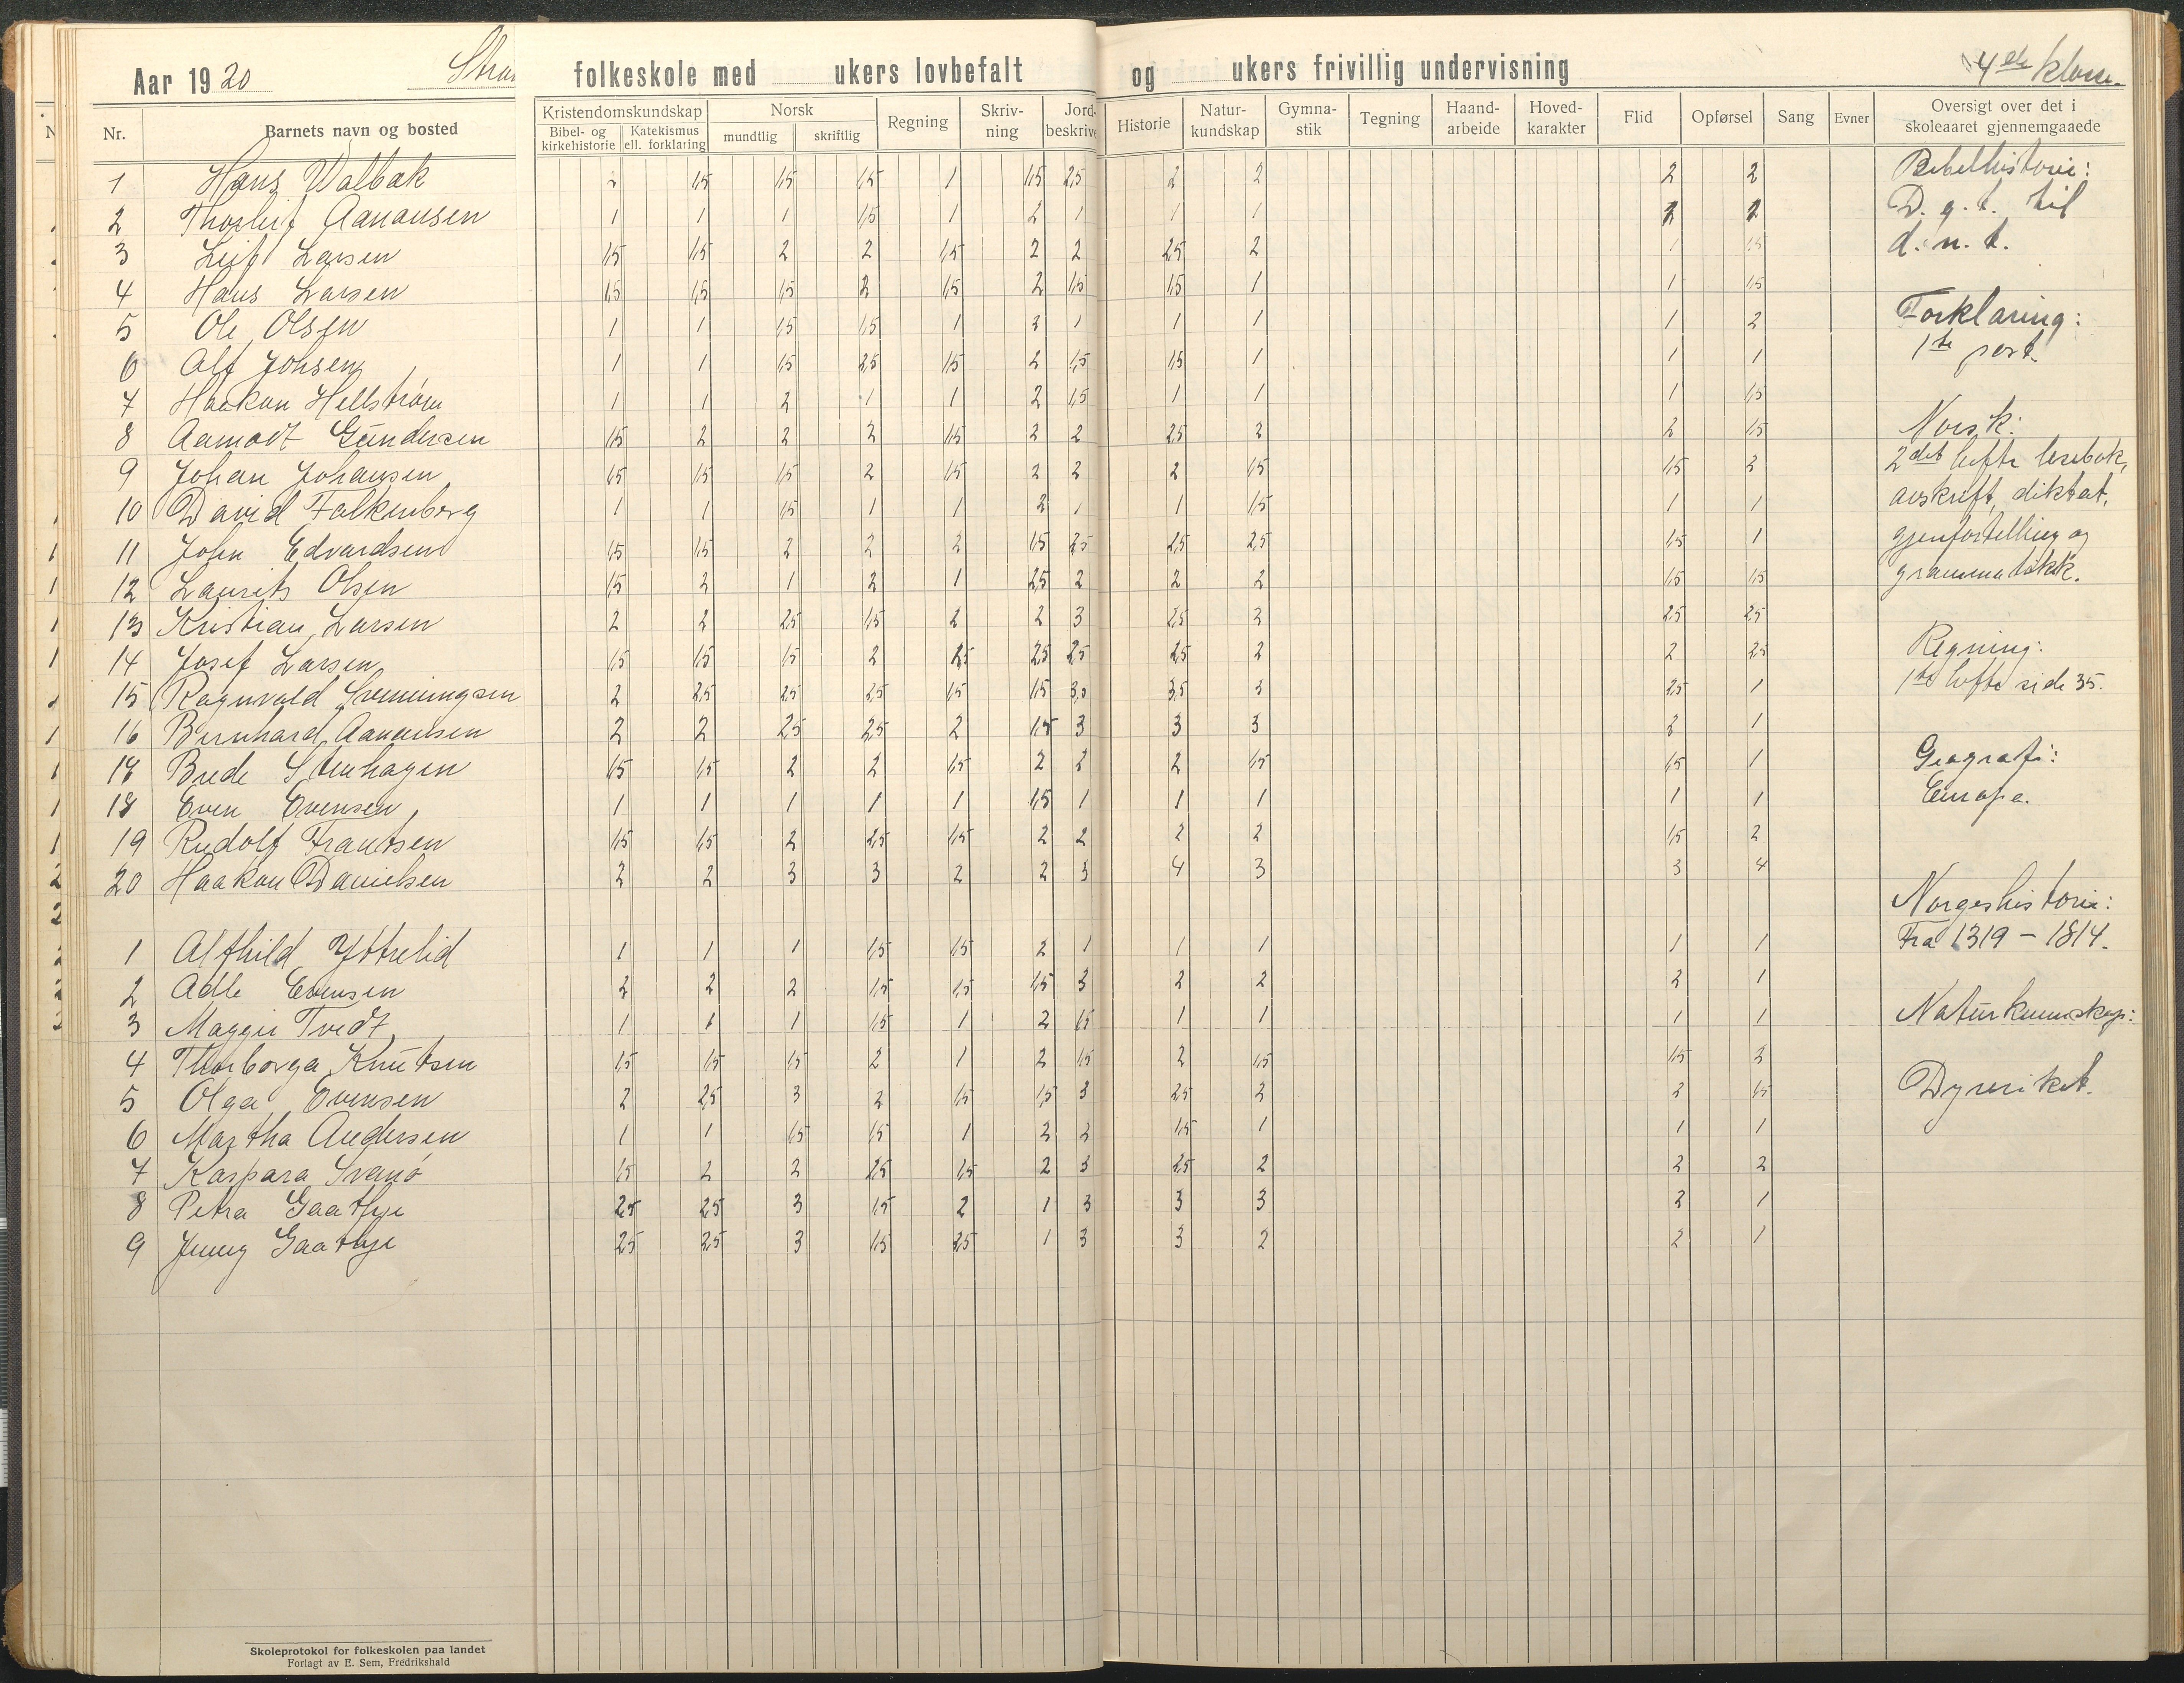 Aar 1920
folkeskole med ukers lovbefalt og ukers frivillig undervisning
4de klasse
Nr. Barnets navn og bosted Kristendomskundskap Bibel- og kirkehistorie Katekismus ell. forklaring Norsk mundtlig skriftlig Regning Skriv-ning Jord-beskriv Historie Natur-kundskap Gymna-stik Tegning Haand-arbeide Hoved-karakter Flid Opførsel Sang Evner Oversigt over det i skoleaaret gjennemgaaede
1 Hans Walbak 2 1,5 1,5 1,5 1 1,5 2,5 2 2 2 2
2 Thorleif Aanonsen 1 1 1 1,5 1 2 1 1 1 2 2
3 Leif Larsen 1,5 1,5 2 2 1,5 2 2 2,5 2 1 1,5
4 Hans Larsen 1,5 1,5 1,5 2 1,5 2 1,5 1,5 1 1 1,5
5 Ole Olsen 1 1 1,5 1,5 1 3 1 1 1 1 2
6 Alf Johsen 1 1 1,5 2,5 1,5 2 1,5 1,5 1 1 1
7 Haakon Hellstrøm 1 1 2 1 1 2 1,5 1 1 1 1,5
8 Aamodt Gundersen 1,5 2 2 2 1,5 2 2 2,5 2 2 1,5
9 Johan Johansen 1,5 1,5 1,5 2 1,5 2 2 2 1,5 1,5 2
10 David Falkenborg 1 1 1,5 1 1 2 1 1 1,5 1 1
11 John Edvardsen 1,5 1,5 2 2 2 1,5 2,5 2,5 2,5 1,5 1
12 Laurits Olsen 1,5 2 1 2 1 2,5 2 2 2 1,5 1,5
13 Kristian Larsen 2 2 2,5 1,5 2 2 3 2,5 3 2,5 2,5
14 Josef Larsen 1,5 1,5 1,5 2 2,5 2,5 2,5 2 2 2,5
15 Ragnvald Svenningsen 2 2,5 2,5 2,5 1,5 1,5 3,5 3 2,5 1
16 Bernhard Aanonsen 2 2 2,5 2,5 2 1,5 3 3 3 2 1
17 Brede Stenhagen 1,5 1,5 2 2 1,5 2 2 2 1,5 1,5 1
18 Even Evensen 1 1 1 1 1 1,5 1 1 1 1 1
19 Rudolf Frantsen 1,5 1,5 2 2,5 1,5 2 2 2 2 1,5 2
20 Haakon Danielsen 2 2 3 3 2 2 3 4 3 3 4
1 Alfhild Yttrelid 1 1 1 1,5 1,5 2 1 1 1 1 1
2 Adle Evensen 2 2 2 1,5 1,5 1,5 3 2 2 2 1
3 Maggie Tvedt 1 1 1 1,5 1 2 1,5 1 1 1 1
4 Thorborga Knutsen 1,5 1,5 1,5 2 1 2 1,5 2 1,5 1,5 2
5 Olga Evensen 2 2,5 3 2 1,5 1,5 3 2,5 2 2 1,5
6 Martha Andersen 1 1 1,5 1,5 1 2 2 1,5 1 1 1
7 Kaspara Svanø 1,5 2 2 2,5 1,5 2 3 2,5 2 2 2
8 Petra Gaathje 2,5 2,5 3 1,5 2 1 3 3 3 2 1
9 Jenny Gaathje 2,5 2,5 3 1,5 2,5 1 3 3 2 2 1
Bibelhistorie:
D. g. t. til
d. n. t.
Forklaring:
1ste part.
Norsk:
2det hefte lesebok,
avskrift, diktat,
gjenfortelling og
grammatikk.
Regning:
1ste hefte side 35.
Geografi:
Europa.
Norgeshistorie:
Fra 1319 - 1814.
Naturkunnskap:
Dyreriket.
Skoleprotokol for folkeskolen paa landet
Forlagt av E. Sem, Fredrikshald